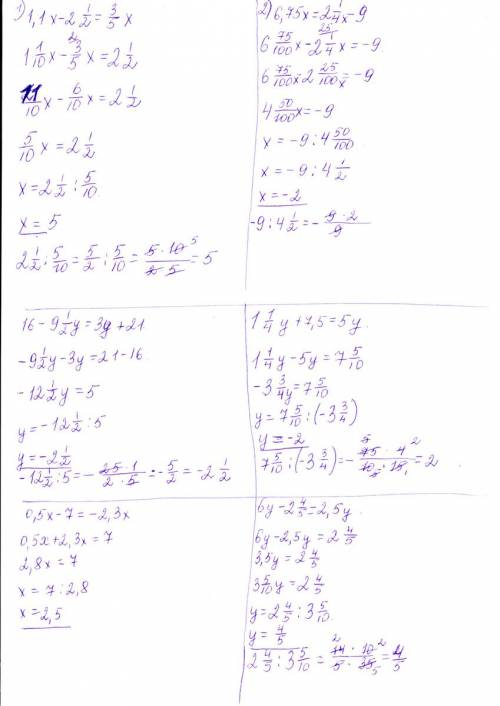 1) 1,1x - 2 1/2 = 3/5 x
1 1/10 x - 3/5 x = 2 1/2
11/10 x - 6/10 x = 2 1/2
5/10 x = 2 1/2
x = 2 1/2 : 5/10
x = 5
2 1/2 : 5/10 = 5/2 : 5/10 = 5·10/2·5 = 5
2) 6,75x = 2 1/4 x - 9
6 75/100 x - 2 1/4 x = -9
6 75/100 x 2 25/100 x = -9
4 50/100 x = -9
x = -9 : 4 50/100
x = -9 : 4 1/2
x = -2
-9 : 4 1/2 = - 9·2/9
16 - 9 1/2 y = 3y + 21
-9 1/2 y - 3y = 21 - 16
-12 1/2 y = 5
y = -12 1/2 : 5
y = -2 1/2
-12 1/2 : 5 = - 25·1/2·5 = - 5/2 = -2 1/2
1 1/4 y + 7,5 = 5y
1 1/4 y - 5y = 7 5/10
-3 3/4 y = 7 5/10
y = 7 5/10 : (-3 3/4)
y = -2
7 5/10 : (-3 3/4) = - 75·4/10·15 = 2
0,5x - 7 = -2,3x
0,5x + 2,3x = 7
2,8x = 7
x = 7 : 2,8
x = 2,5
6y - 2 4/5 = 2,5y
6y - 2,5y = 2 4/5
3,5y = 2 4/5
3 5/10 y = 2 4/5
y = 2 4/5 : 3 5/10
y = 4/5
2 4/5 : 3 5/10 = 14·10/5·35 = 4/5